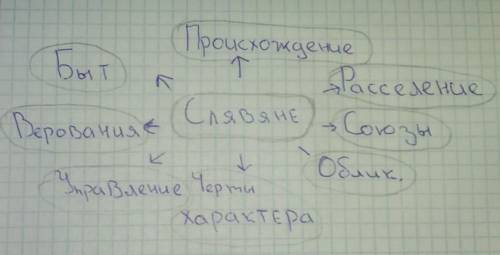 Происхождение
Быт
Расселение
Верования
Слявяне
Союзы
Облик.
Управление
Черти
характера